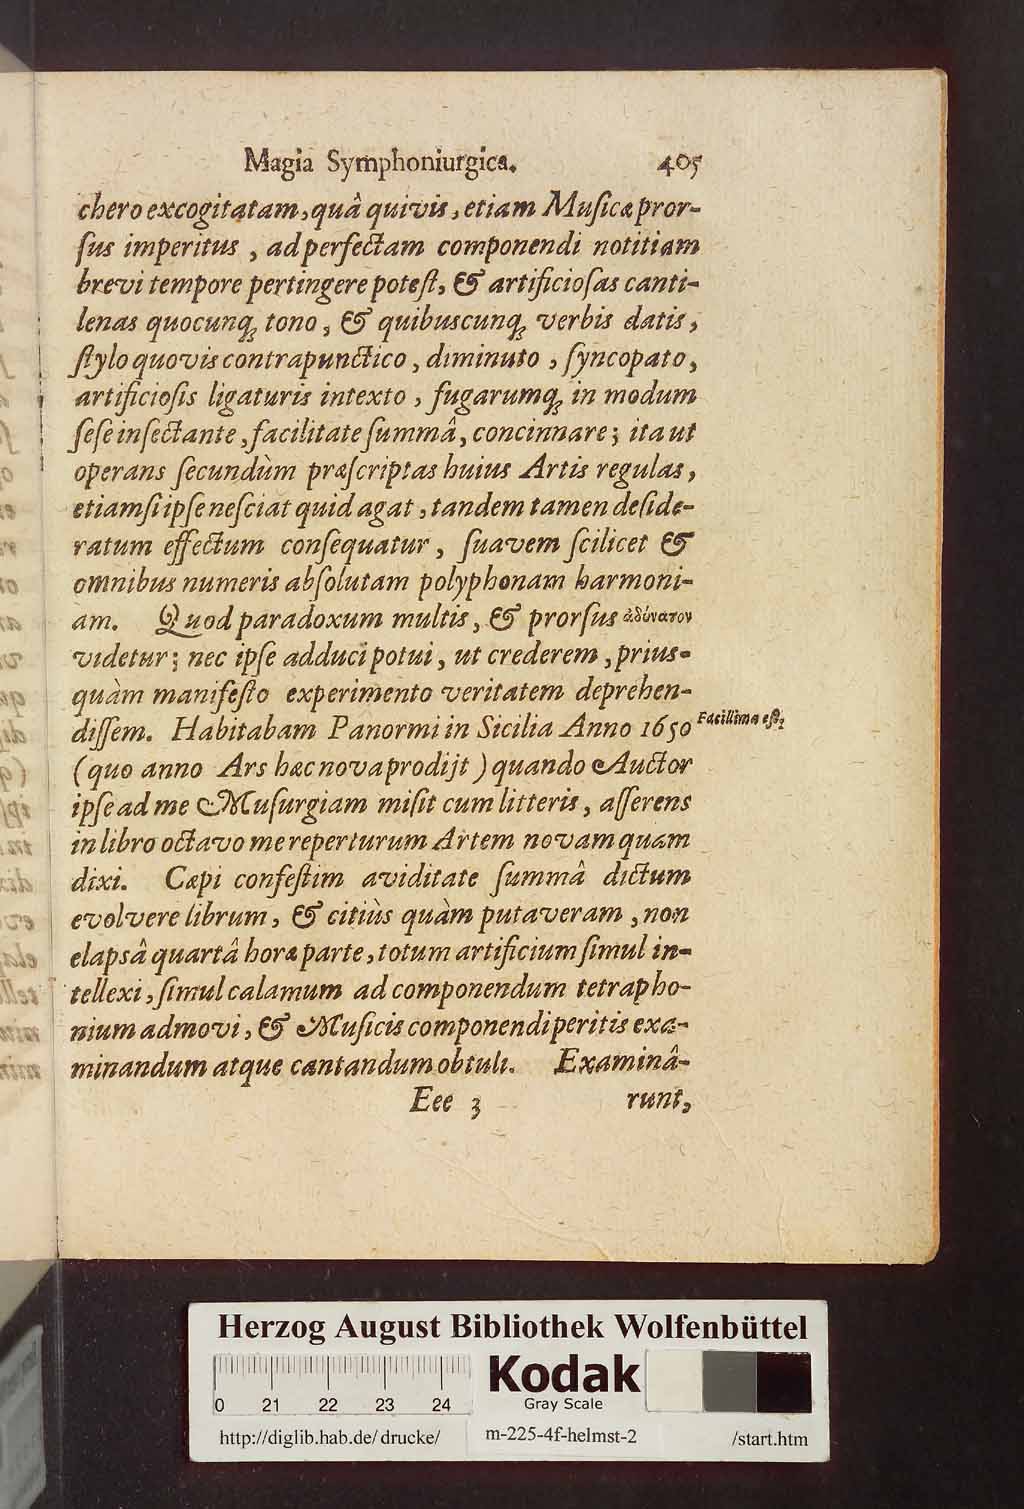 Magia Symphoniurgica. 405
chero excogitatam, quâ quivis, etiam Musicæ pror-
sus imperitus, ad perfectam componendi notitiam
brevi tempore pertingere potest, & artificiosas canti-
lenas quocunq; tono, & quibuscunq; verbis datis,
stylo quovis contrapunctico, diminuto, syncopato,
artificiosis ligaturis intexto, fugarumq; in modum
sese insectante, facilitate summâ, concinnare; ita ut
operans secundùm præscriptas huius Artis regulas,
etiamsi ipse nesciat quid agat, tandem tamen deside-
ratum effectum consequatur, suavem scilicet &
omnibus numeris absolutam polyphonam harmoni-
am. Quod paradoxum multis, & prorsus ἀδύνατον
videtur; nec ipse adduci potui, ut crederem, prius-
quàm manifesto experimento veritatem deprehen-
dissem. Habitabam Panormi in Sicilia Anno 1650
Facillima est;
(quo anno Ars hæc nova prodijt) quando Auctor
ipse ad me Musurgiam misit cum litteris, asserens
in libro octavo me reperturum Artem novam quam
dixi. Cæpi confestim aviditate summâ dictum
evolvere librum, & citiùs quàm putaveram, non
elapsâ quartâ horæ parte, totum artificium simul in-
tellexi, simul calamum ad componendum tetrapho-
nium admovi, & Musicis componendi peritis exa-
minandum atque cantandum obtuli. Examinâ-
Eee 3 runt,
Herzog August Bibliothek Wolfenbüttel
0 21 22 23 24
Kodak
Gray Scale
http://diglib.hab.de/drucke/ m-225-4f-helmst-2 /start.htm